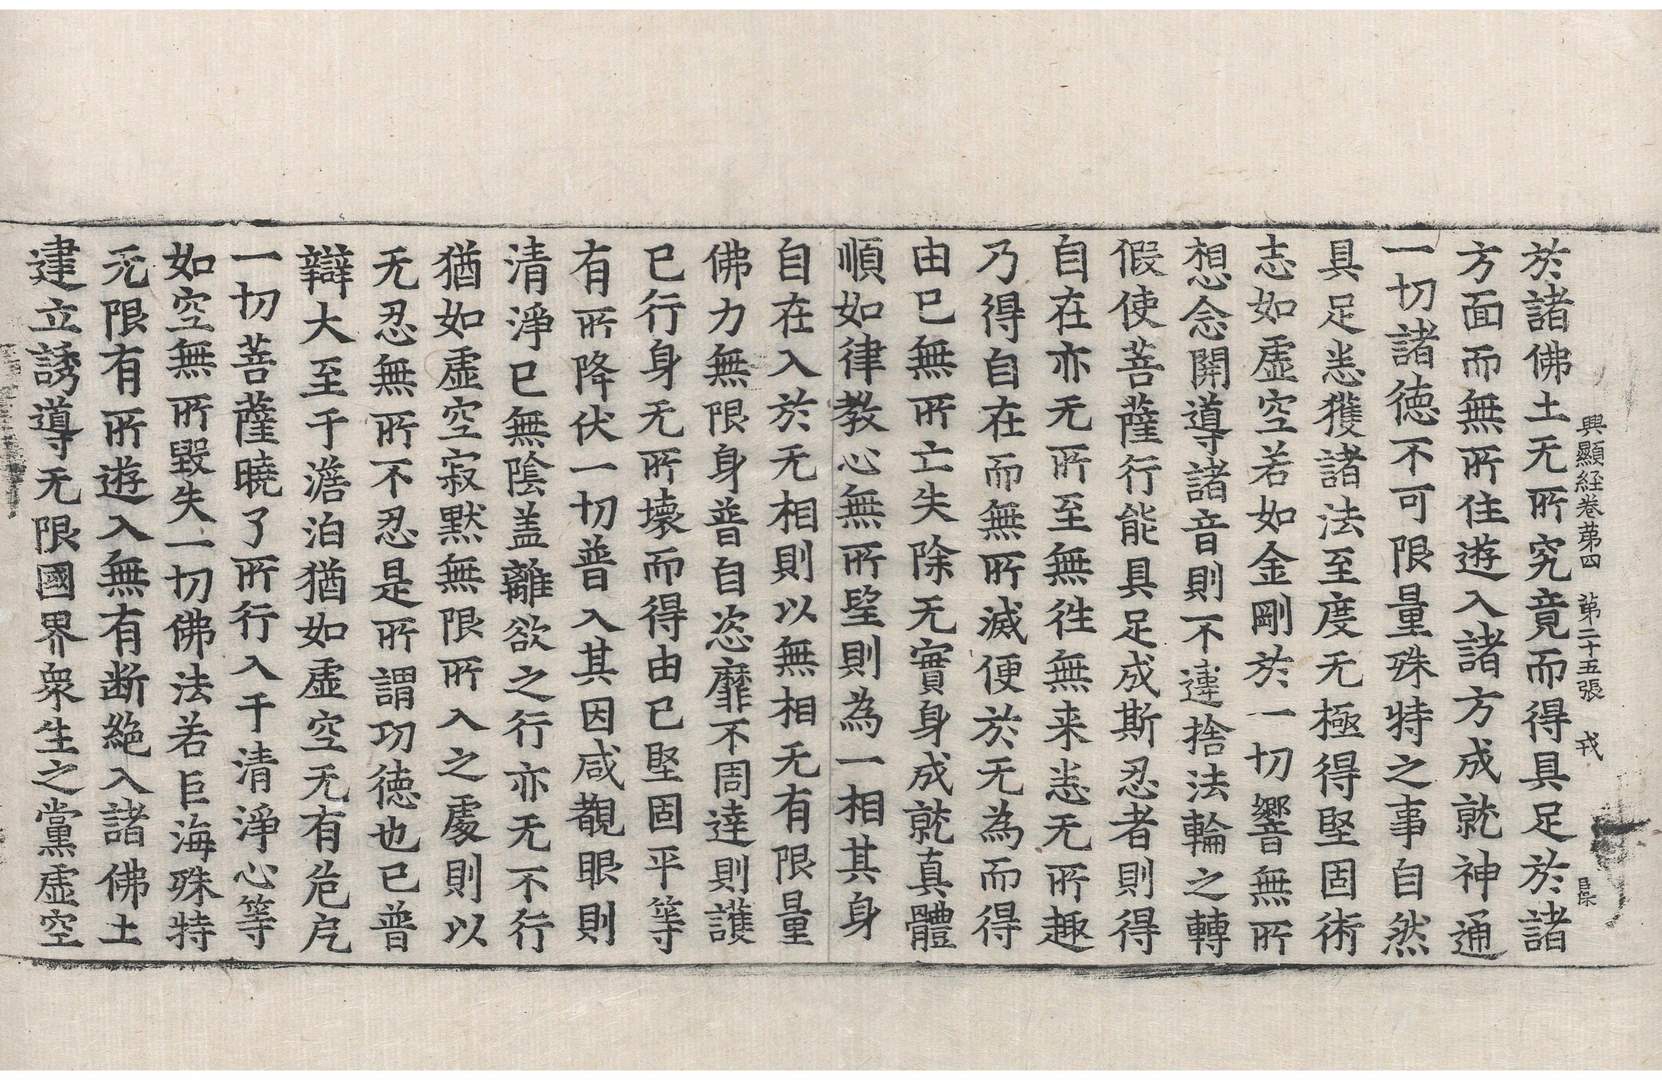 興顯経卷苐四　苐二十五張　戎
於諸佛土无所究竟而得具足於諸
方面而無所住遊入諸方成就神通
一切諸徳不可限量殊特之事自然
具足悉獲諸法至度无極得堅固術
志如虛空若如金剛於一切響無所
想念開導諸音則不違捨法輪之轉
假使菩薩行能具足成斯忍者則得
自在亦无所至無徃無来悉无所趣
乃得自在而無所滅便於无為而得
由已無所亡失除无實身成就真體
順如律教心無所望則為一相其身
自在入於无相則以無相无有限量
佛力無限身普自恣靡不周達則護
已行身无所壞而得由已堅固平等
有所降伏一切普入其因咸覩眼則
清淨已無陰盖離欲之行亦无不行
猶如虛空寂默無限所入之處則以
无忍無所不忍是所謂功徳也已普
辯大至千澹泊猶如虛空无有危戹
一切菩薩曉了所行入于清淨心等
如空無所毀失一切佛法若巨海殊特
无限有所遊入無有断絶入諸佛土
建立誘導无限國界衆生之黨虛空